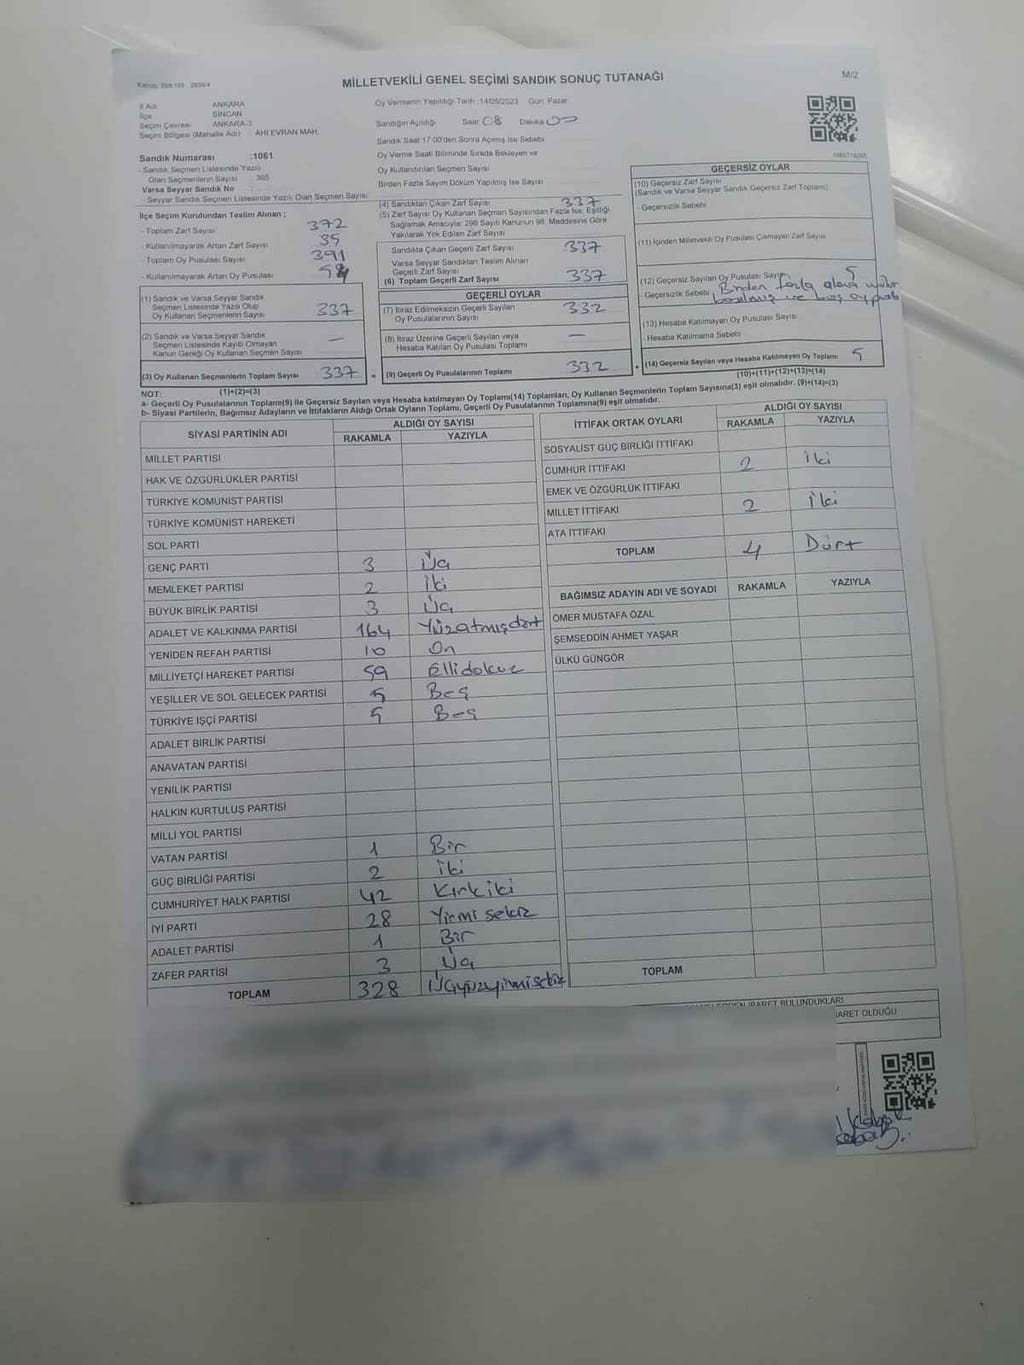 MİLLETVEKİLİ GENEL SEÇİMİ SANDIK SONUÇ TUTANAĞI
M/2
İl Adı ANKARA
İlçe SİNCAN
Seçim Çevresi ANKARA-3
Seçim Bölgesi (Mahalle Adı) AHİ EVRAN MAH.
Oy Vermenin Yapıldığı Tarih :14/05/2023 Gün: Pazar
Sandığın Açıldığı Saat: 08 Dakika
Sandık Saat 17:00'den Sonra Açılmış İse Sebebi
Oy Verme Saati Bitiminde Sırada Bekleyen ve
Oy Kullandırılan Seçmen Sayısı
Birden Fazla Sayım Döküm Yapılmış İse Sayısı
Sandık Numarası :1061
- Sandık Seçmen Listesinde Yazılı
Olan Seçmenlerin Sayısı 365
Varsa Seyyar Sandık No :
- Seyyar Sandık Seçmen Listesinde Yazılı Olan Seçmen Sayısı
İlçe Seçim Kurulundan Teslim Alınan ;
- Toplam Zarf Sayısı 372
- Kullanılmayarak Artan Zarf Sayısı 35
- Toplam Oy Pusulası Sayısı 391
- Kullanılmayarak Artan Oy Pusulası 54
(1) Sandık ve Varsa Seyyar Sandık
Seçmen Listesinde Yazılı Olup
Oy Kullanan Seçmenlerin Sayısı 337
(2) Sandık ve Varsa Seyyar Sandık
Seçmen Listesinde Kayıtlı Olmayan
Kanun Gereği Oy Kullanan Seçmen Sayısı —
(3) Oy Kullanan Seçmenlerin Toplam Sayısı 337
(4) Sandıktan Çıkan Zarf Sayısı 337
(5) Zarf Sayısı Oy Kullanan Seçmen Sayısından Fazla İse, Eşitliği
Sağlamak Amacıyla; 298 Sayılı Kanunun 98. Maddesine Göre
Yakılarak Yok Edilen Zarf Sayısı
Sandıkta Çıkan Geçerli Zarf Sayısı 337
Varsa Seyyar Sandıktan Teslim Alınan
Geçerli Zarf Sayısı
(6) Toplam Geçerli Zarf Sayısı 337
GEÇERLİ OYLAR
(7) İtiraz Edilmeksizin Geçerli Sayılan
Oy Pusulalarının Sayısı 332
(8) İtiraz Üzerine Geçerli Sayılan veya
Hesaba Katılan Oy Pusulası Toplamı —
(9) Geçerli Oy Pusulalarının Toplamı 332
GEÇERSİZ OYLAR
(10) Geçersiz Zarf Sayısı
(Sandık ve Varsa Seyyar Sandık Geçersiz Zarf Toplamı)
- Geçersizlik Sebebi
(11) İçinden Milletvekili Oy Pusulası Çıkmayan Zarf Sayısı
(12) Geçersiz Sayılan Oy Pusulası Sayısı 5
- Geçersizlik Sebebi Birden fazla alana mühür
basılmış ve boş oy pusula
(13) Hesaba Katılmayan Oy Pusulası Sayısı
- Hesaba Katılmama Sebebi
(14) Geçersiz Sayılan veya Hesaba Katılmayan Oy Toplamı 5
(10)+(11)+(12)+(13)=(14)
NOT: (1)+(2)=(3)
a- Geçerli Oy Pusulalarının Toplamı(9) ile Geçersiz Sayılan veya Hesaba katılmayan Oy Toplamı(14) Toplamları, Oy Kullanan Seçmenlerin Toplam Sayısına(3) eşit olmalıdır. (9)+(14)=(3)
b- Siyasi Partilerin, Bağımsız Adayların ve İttifakların Aldığı Ortak Oyların Toplamı, Geçerli Oy Pusulalarının Toplamına(9) eşit olmalıdır.
SİYASİ PARTİNİN ADI ALDIĞI OY SAYISI
RAKAMLA YAZIYLA
MİLLET PARTİSİ
HAK VE ÖZGÜRLÜKLER PARTİSİ
TÜRKİYE KOMÜNİST PARTİSİ
TÜRKİYE KOMÜNİST HAREKETİ
SOL PARTİ
GENÇ PARTİ 3 Üç
MEMLEKET PARTİSİ 2 İki
BÜYÜK BİRLİK PARTİSİ 3 Üç
ADALET VE KALKINMA PARTİSİ 164 Yüzatmışdört
YENİDEN REFAH PARTİSİ 10 On
MİLLİYETÇİ HAREKET PARTİSİ 59 Ellidokuz
YEŞİLLER VE SOL GELECEK PARTİSİ 5 Beş
TÜRKİYE İŞÇİ PARTİSİ 5 Beş
ADALET BİRLİK PARTİSİ
ANAVATAN PARTİSİ
YENİLİK PARTİSİ
HALKIN KURTULUŞ PARTİSİ
MİLLİ YOL PARTİSİ
VATAN PARTİSİ 1 Bir
GÜÇ BİRLİĞİ PARTİSİ 2 İki
CUMHURİYET HALK PARTİSİ 42 Kırkiki
İYİ PARTİ 28 Yirmi sekiz
ADALET PARTİSİ 1 Bir
ZAFER PARTİSİ 3 Üç
TOPLAM 328 Üçyüzyirmisekiz
İTTİFAK ORTAK OYLARI ALDIĞI OY SAYISI
RAKAMLA YAZIYLA
SOSYALİST GÜÇ BİRLİĞİ İTTİFAKI
CUMHUR İTTİFAKI 2 İki
EMEK VE ÖZGÜRLÜK İTTİFAKI
MİLLET İTTİFAKI 2 İki
ATA İTTİFAKI
TOPLAM 4 Dört
BAĞIMSIZ ADAYIN ADI VE SOYADI RAKAMLA YAZIYLA
ÖMER MUSTAFA ÖZAL
ŞEMSEDDİN AHMET YAŞAR
ÜLKÜ GÜNGÖR
TOPLAM
İBARET BULUNDUKLARI
İBARET OLDUĞU